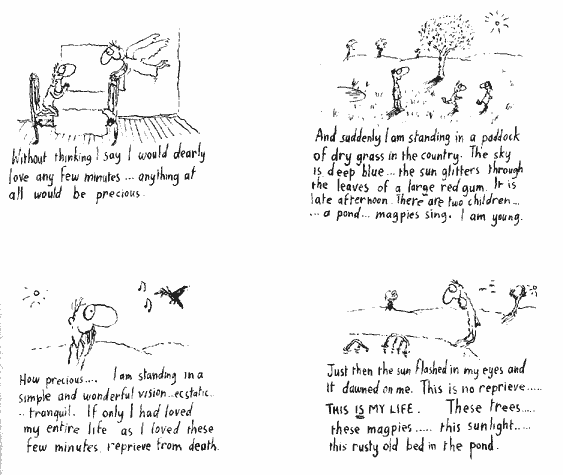 Without thinking I say I would dearly
love any few minutes ... anything at
all would be precious.
And suddenly I am standing in a paddock
of dry grass in the country. The sky
is deep blue ... the sun glitters through
the leaves of a large redgum. It is
late afternoon. There are two children ...
... a pond ... magpies sing. I am young.
How precious .... I am standing in a
simple and wonderful vision .. ecstatic ..
.. tranquil. If only I had loved
my entire life as I loved these
few minutes. reprieve from death.
Just then the sun flashed in my eyes and
it dawned on me. This is no reprieve .....
THIS IS MY LIFE. These trees .....
these magpies ..... this sunlight .....
this rusty old bed in the pond.